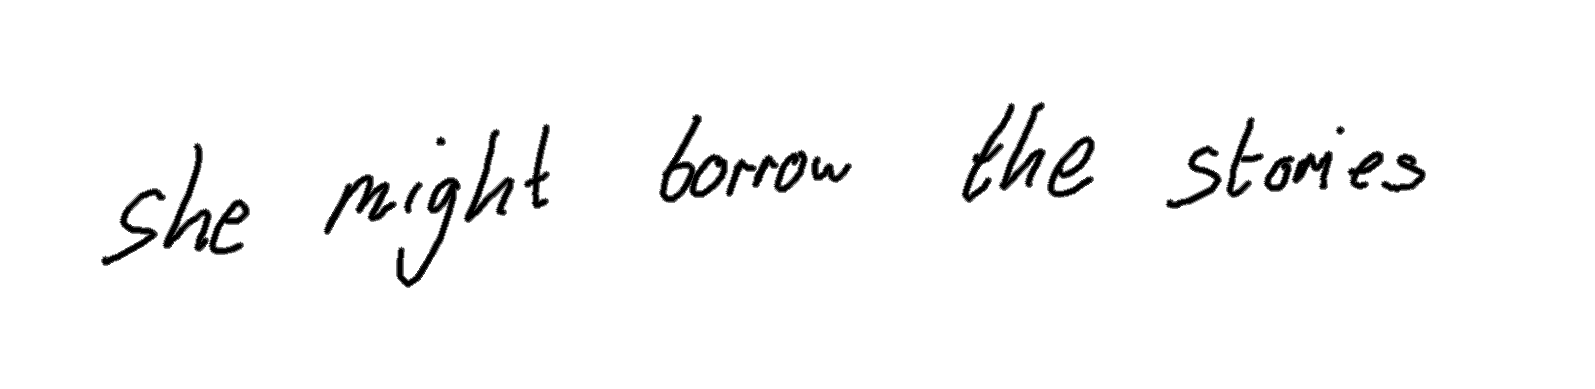 she might borrow the stories